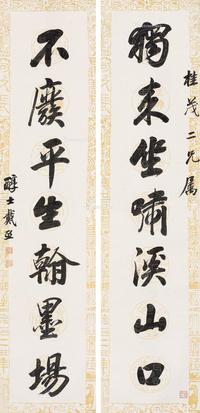 桂茂二兄屬
獨來坐嘯溪山口
不廢平生翰墨場
醇士戴熙